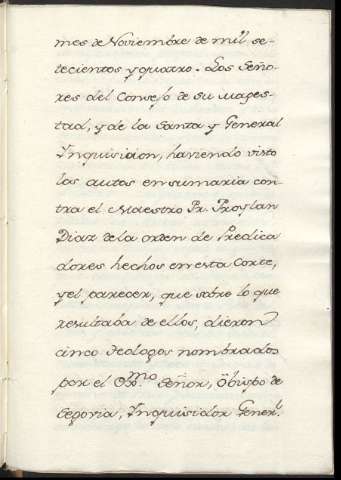 mes de Noviembre de mil se-
tecientos y quatro. Los Seño-
res del Consejo de su mages-
tad, y de la Santa y General
Ynquisicion, haviendo visto
los autos en sumaria con-
tra el Maestro Fr. Froylan
Diaz de la orden de Predica
dores hechos en esta Corte,
y el parecer, que sobre lo que
resultaba de ellos, dieron
cinco Teologos nombrados
por el Exmo. Señor, Obispo de
Segovia, Ynquisidor Generl.